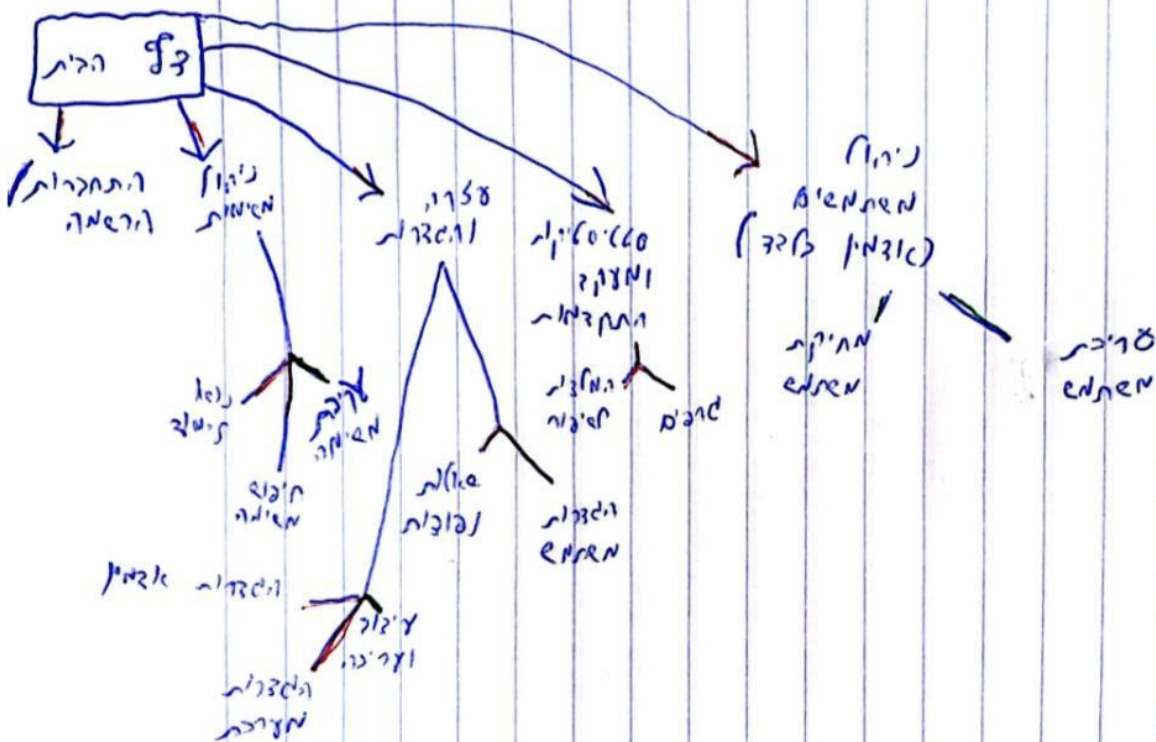 דף הבית
התחברות/
הרשמה
ניהול
משימות
עזרה
והגדרות
סטטיסטיקות
ומעקב
התקדמות
ניהול
משתמשים
(אדמין בלבד)
נושא
לימוד
חיפוש
משימה
עריכת
משימה
שאלות
נפוצות
הגדרות
משתמש
המלצות
לשיפור
גרפים
מחיקת
משתמש
עריכת
משתמש
הגדרות אדמין
הגדרות
מערכת
עיצוב
ועריכה